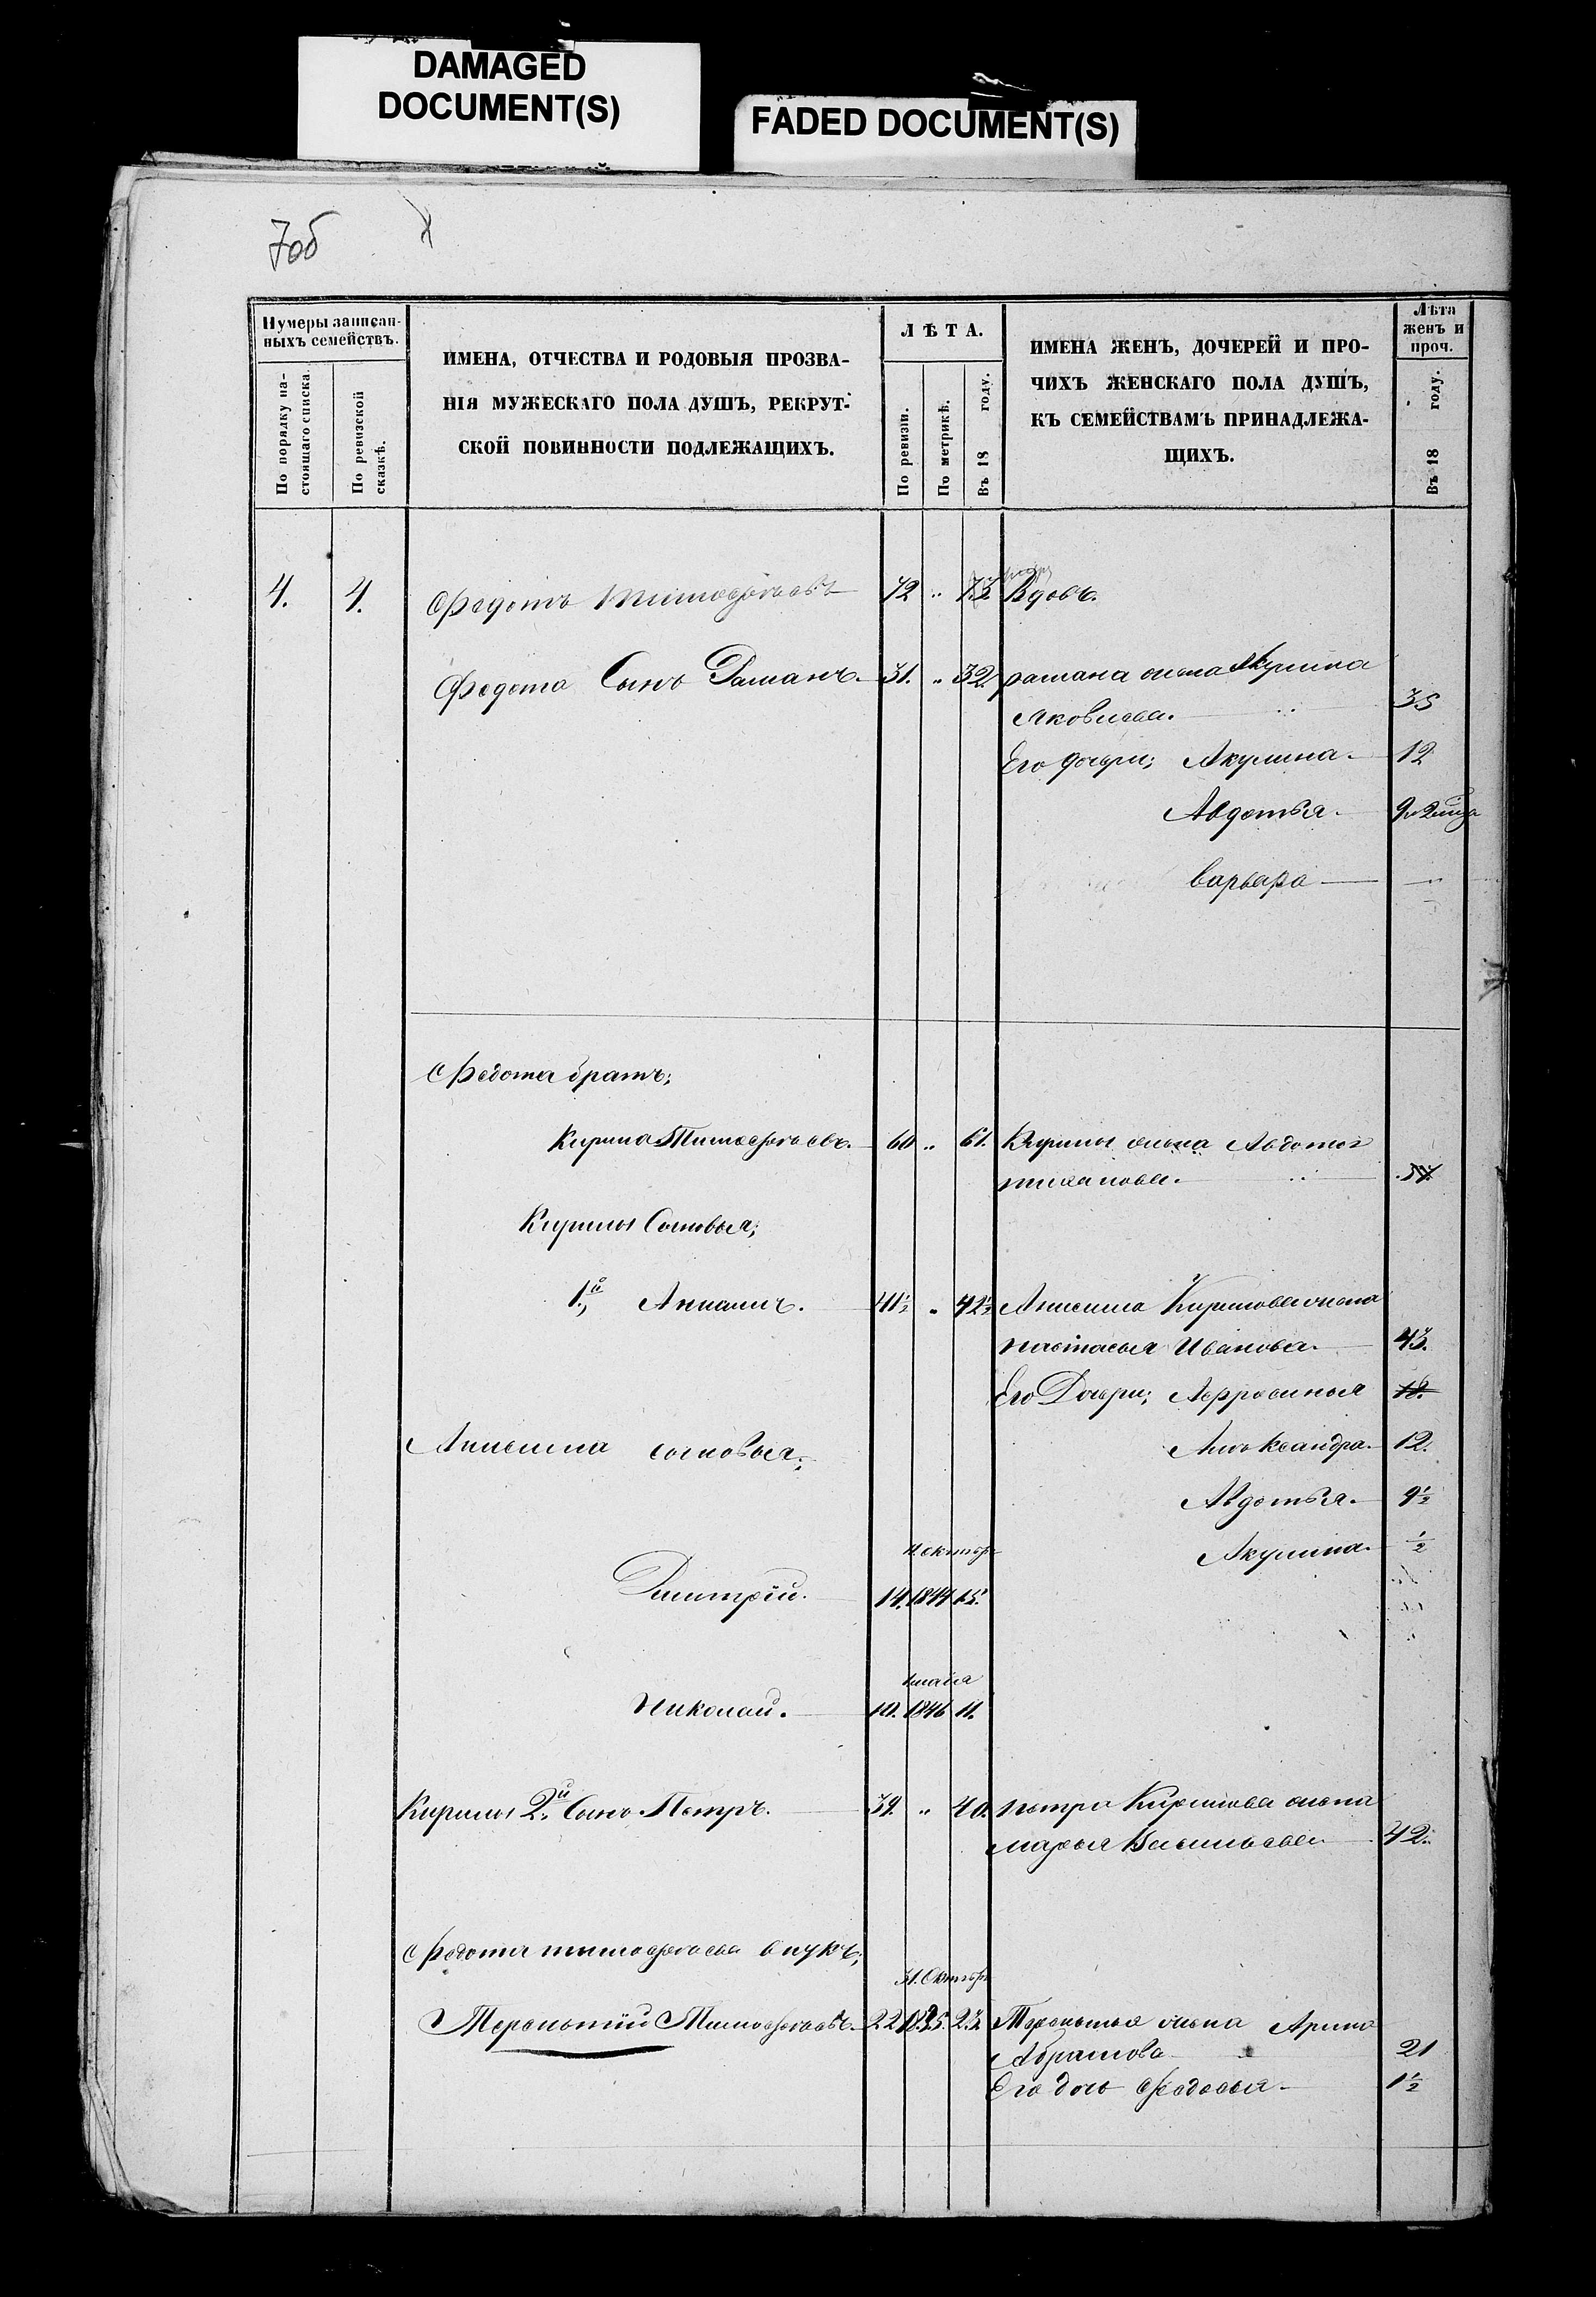 DAMAGED
DOCUMENT(S)
FADED DOCUMENT(S)
7об
Нумеры записан-
ныхъ семействъ.
По порядку на-
стоящаго списка.
По ревизской
сказкѣ.
ИМЕНА, ОТЧЕСТВА И РОДОВЫЯ ПРОЗВА-
НІЯ МУЖЕСКАГО ПОЛА ДУШЪ, РЕКРУТ-
СКОЙ ПОВИННОСТИ ПОДЛЕЖАЩИХЪ.
ЛѢТА.
По ревизіи.
По метрикѣ.
Въ 18 году.
ИМЕНА ЖЕНЪ, ДОЧЕРЕЙ И ПРО-
ЧИХЪ ЖЕНСКАГО ПОЛА ДУШЪ,
КЪ СЕМЕЙСТВАМЪ ПРИНАДЛЕЖА-
ЩИХЪ.
Лѣта
женъ и
проч.
Въ 18 году.
4. 4. Федотъ Тимофѣевъ 72 " 73 Вдовъ.
Федота Сынъ Раманъ. 31. " 32 рамана жена Акулина
Яковлева. 35
Его дочери; Акулина. 12
Авдотья. 9
варвара "
Федота братъ;
Кирила Тимофѣевъ. 60 " 61. Кирилы жена Авдотья
54
Кирилы Сыновья;
1й, Анисимъ. 41½ " 42½ Анисима Кирилова жена
настасья Иванова. 43.
Его Дочери; Аффросинья 18.
Анисима сыновья;
Александра. 12.
Авдотья. 9½
Акулина. ½
октяб
Дмитрій. 14. 1841 15.
Николай. 10. 1846 11.
Кирилы 2й Сынъ Петръ. 39. " 40. петра Кирилова жена
марья Васильева 42.
Федота тимофѣева внукъ;
31. Октяб
Терентій Тимофѣевъ. 22 1835 23. Терентья жена Арина
Абрамова 21
Его дочь Федосья. 1½